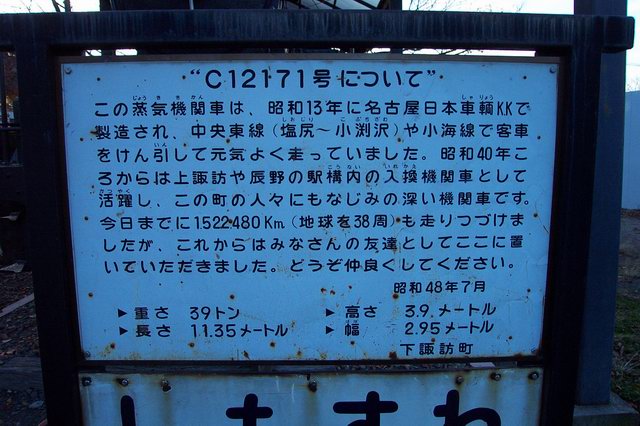 “C12171号について”
この蒸気機関車は、昭和13年に名古屋日本車輌KKで
製造され、中央東線（塩尻〜小渕沢）や小海線で客車
をけん引して元気よく走っていました。昭和40年こ
ろからは上諏訪や辰野の駅構内の入換機関車として
活躍し、この町の人々にもなじみの深い機関車です。
今日までに1522480Km（地球を38周）も走りつづけま
したが、これからはみなさんの友達としてここに置
いていただきました。どうぞ仲良くしてください。
昭和48年7月
▶重さ 39トン ▶高さ 3.9メートル
▶長さ 11.35メートル ▶幅 2.95メートル
下諏訪町
しもすわ